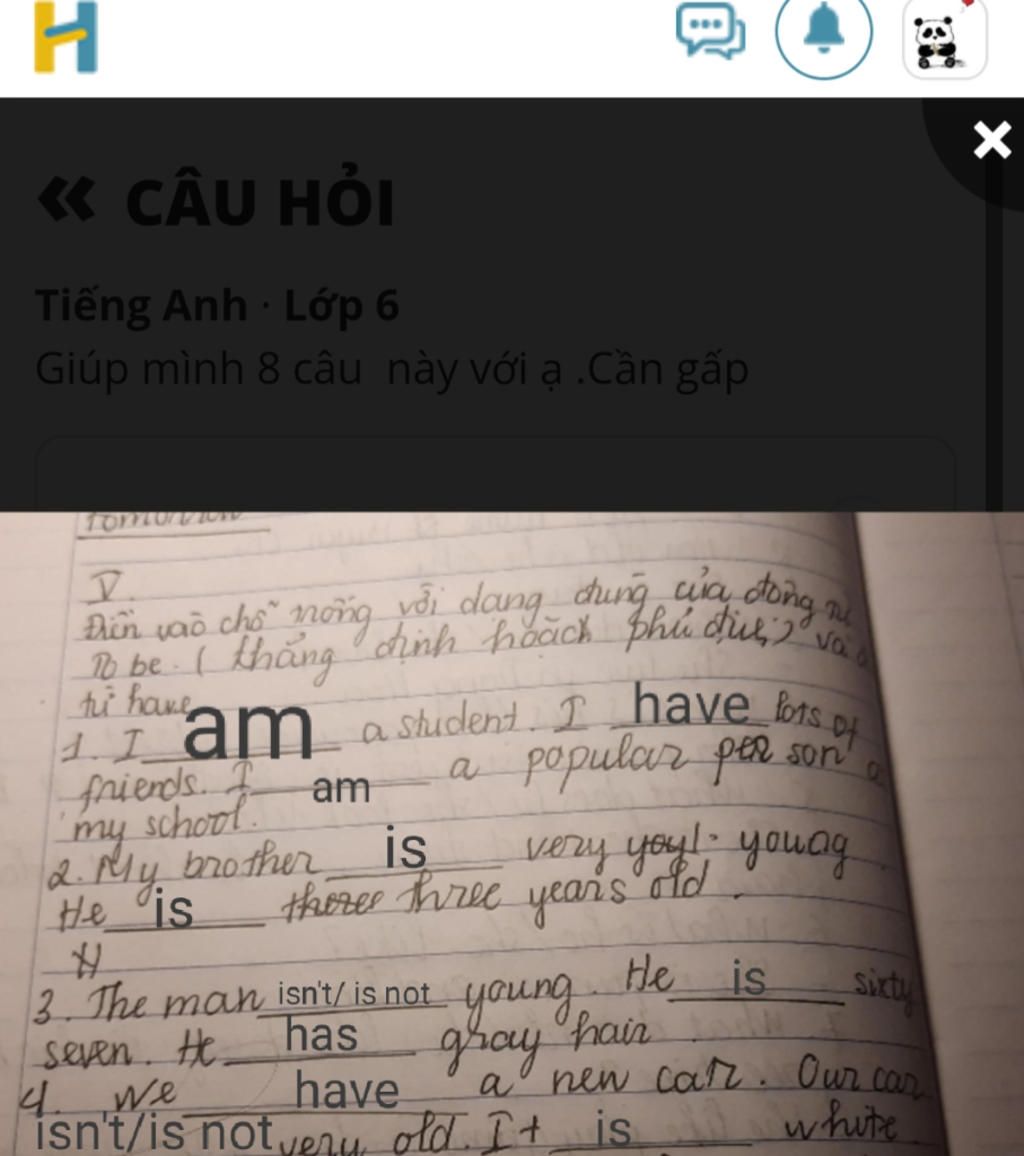 H
« CÂU HỎI
Tiếng Anh · Lớp 6
Giúp mình 8 câu này với ạ .Cần gấp
V.
Điền vaò chỗ nống với dang đung của đông
To be. ( thăng định hoăch phủ định) và
từ have
1. I am a student. I have lots of
friends. I am a popular person
my school.
2. My brother is very yoyl. young
He is theree three years old.
H
3. The man isn't/ is not young. He is sixty
seven. He has gray hair
4. We have a new car. Our car
isn't/is not very old. It is white